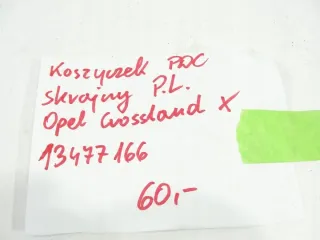 Koszyczek PDC
skrajny P.L.
Opel Crossland X
13477166
60,-